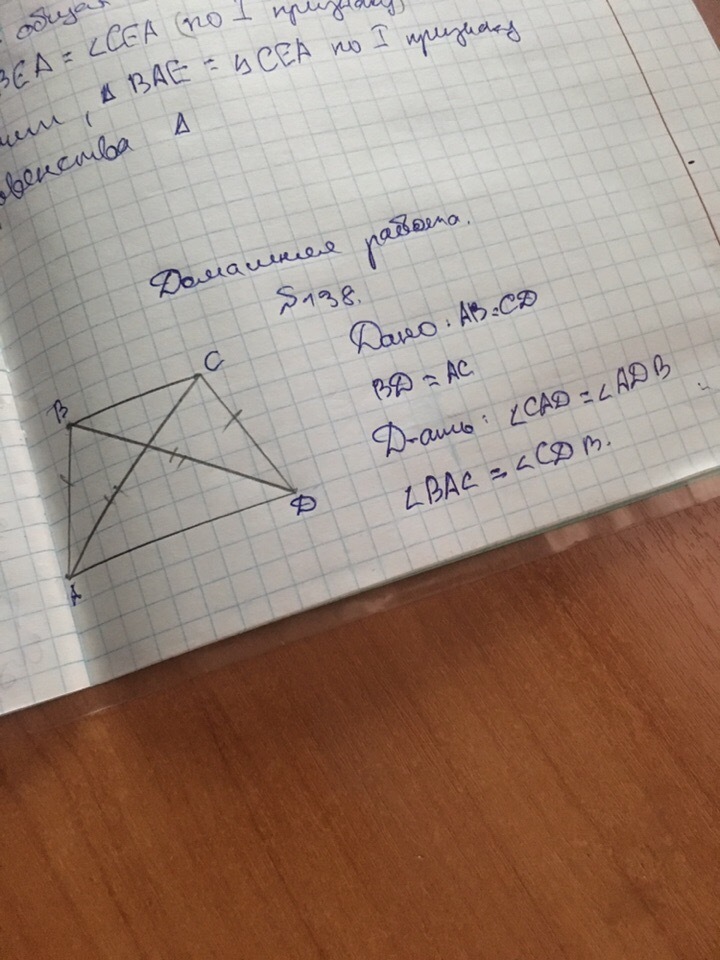 общая
BEA = ∠CEA (по I признаку)
, △ BAE = △ CEA по I признаку
венства △
Домашняя работа.
№138.
Дано: AB=CD
BD = AC
Д-ать: ∠CAD = ∠ADB
∠BAC = ∠CDB.
B
C
A
D